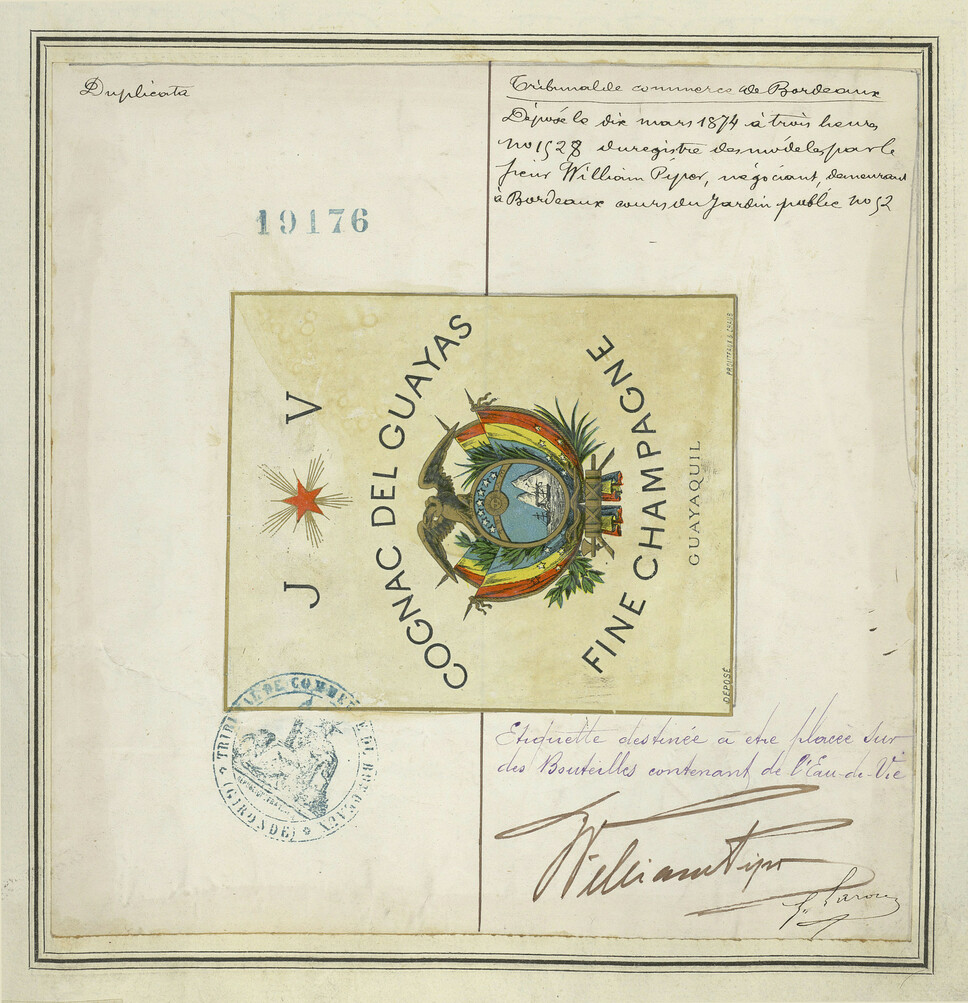 Duplicata
Tribunal de commerce de Bordeaux
Déposé le dix mars 1874 à trois heures
no 1528 du registre des modèles par le
sieur William Pipor, négociant, demeurant
à Bordeaux cours du Jardin public no 52
19176
J V
COGNAC DEL GUAYAS
FINE CHAMPAGNE
GUAYAQUIL
DÉPOSÉ
TRIBUNAL DE COMMERCE DE BORDEAUX
(GIRONDE)
Etiquette destinée à etre placée sur
des Bouteilles contenant de l'Eau-de-Vie
William